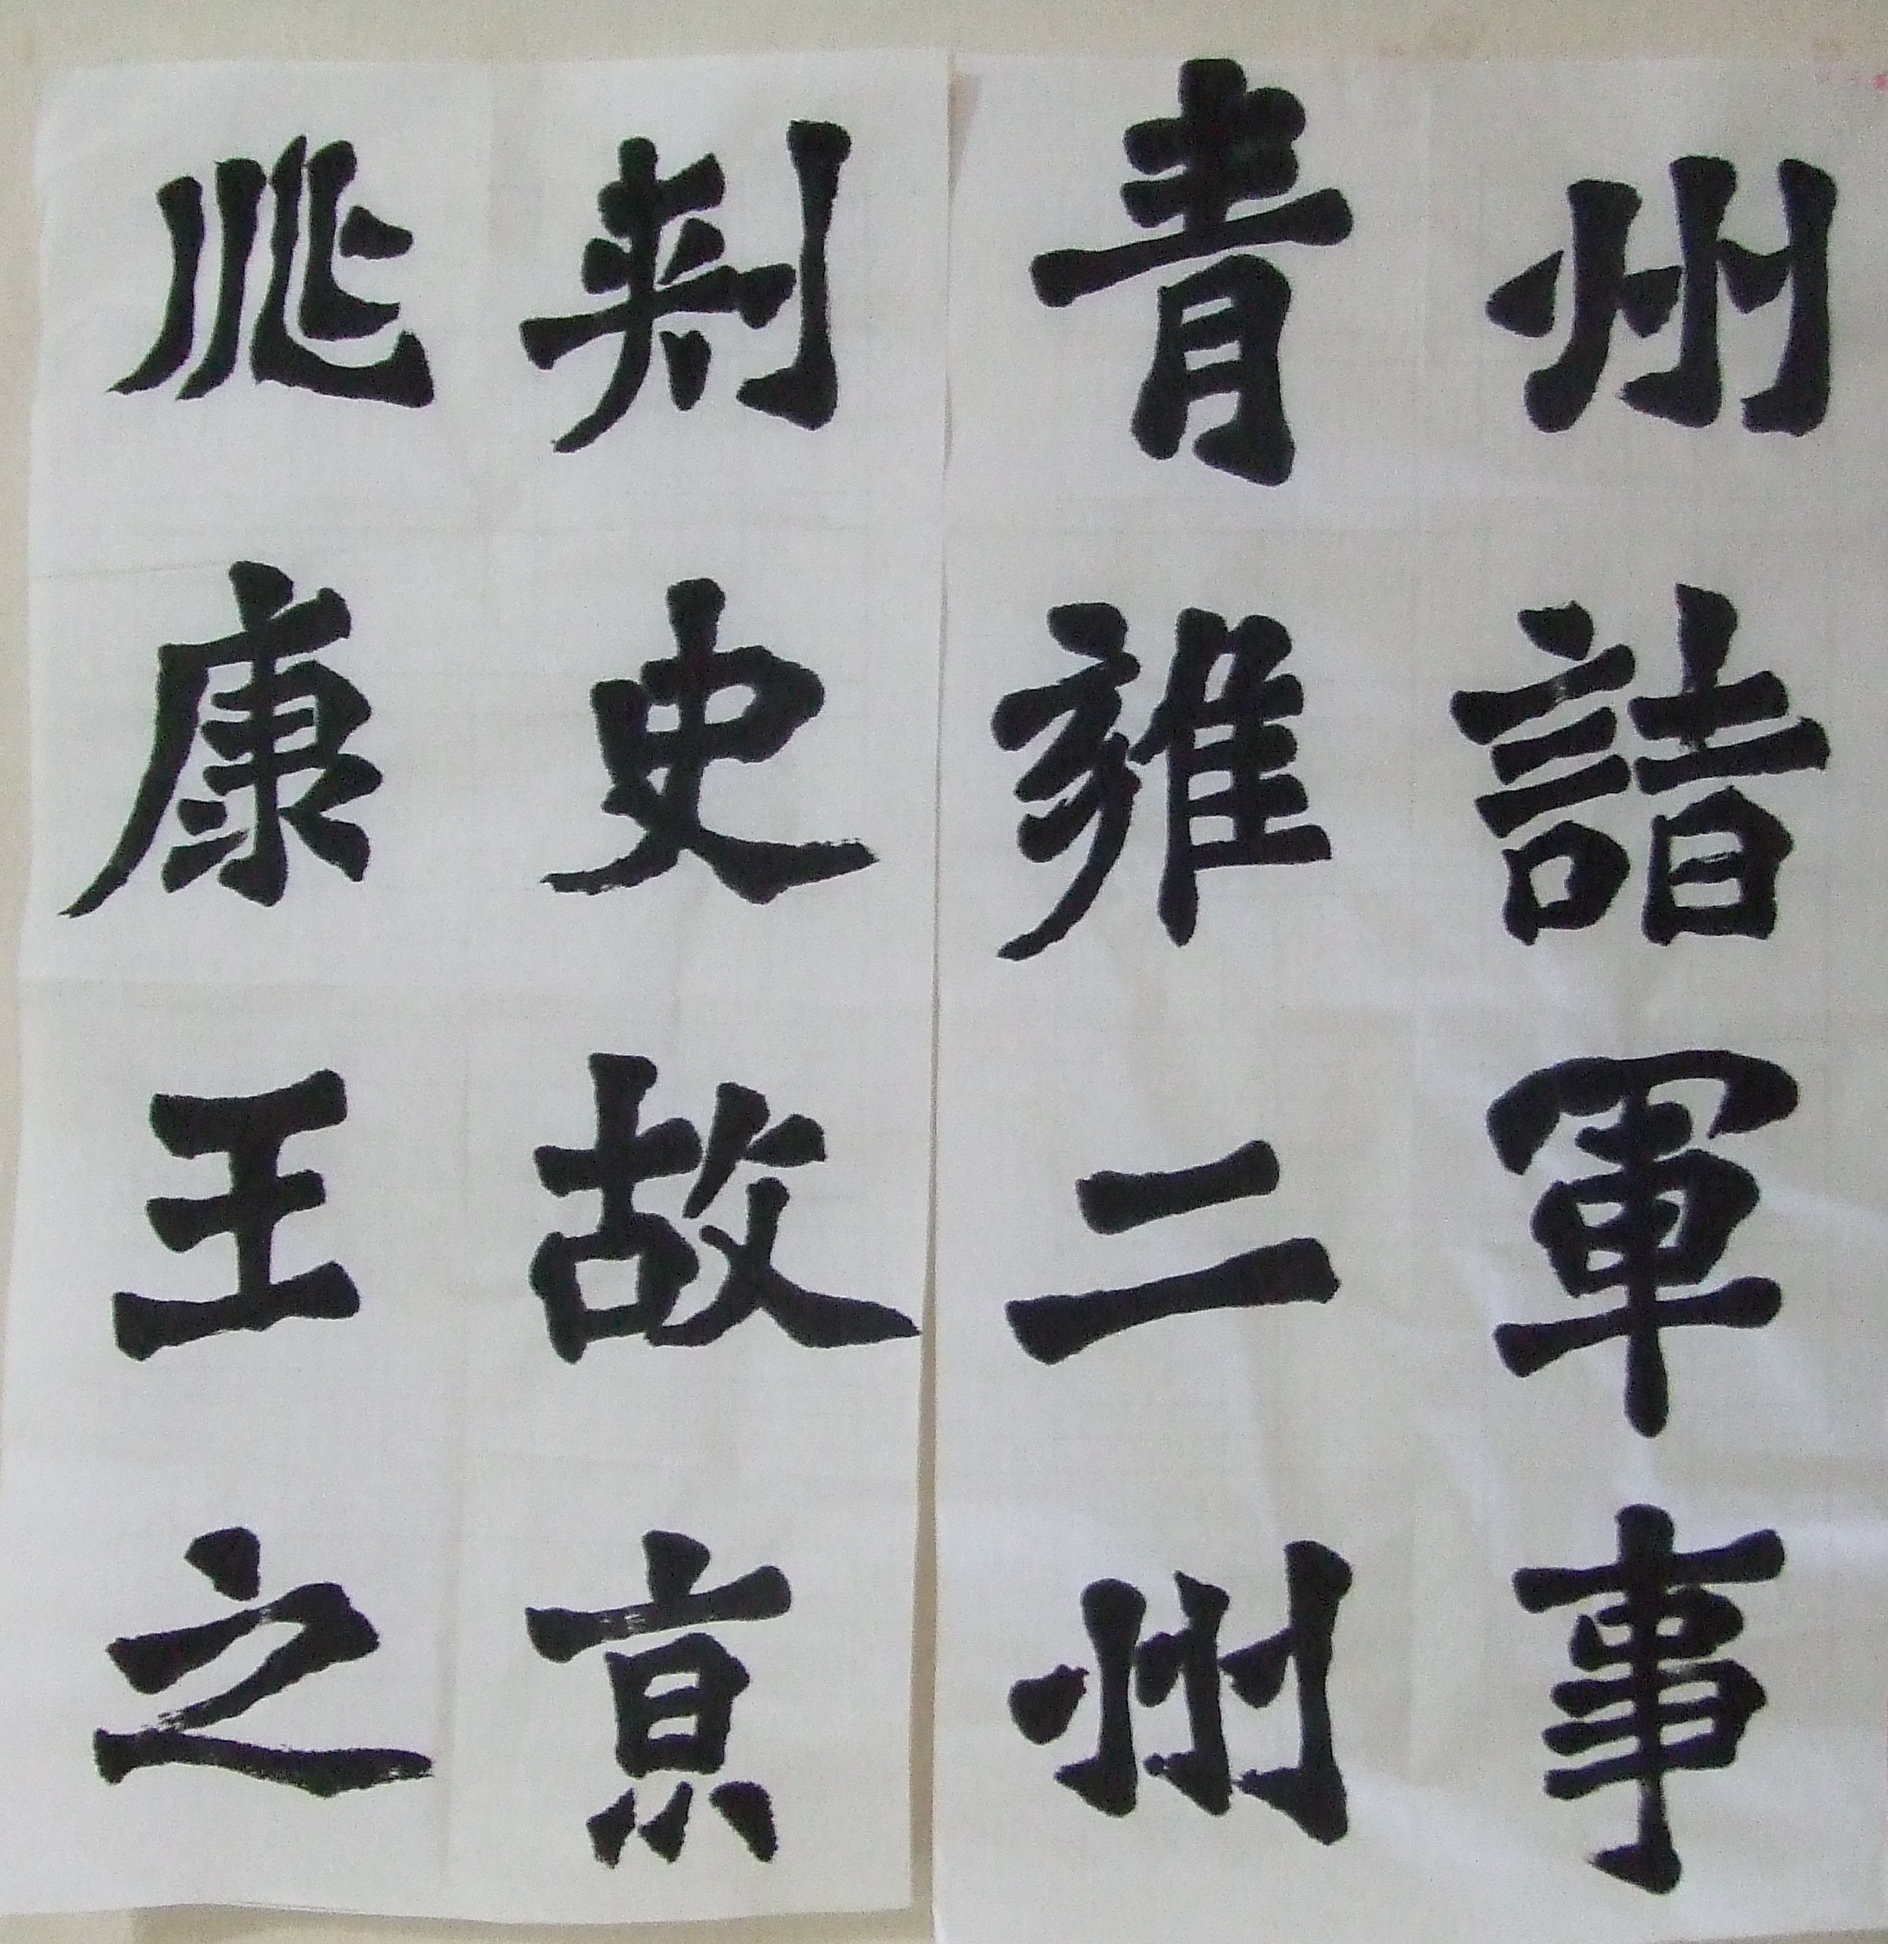 州諸軍事
青雍二州
刺史故京
兆康王之